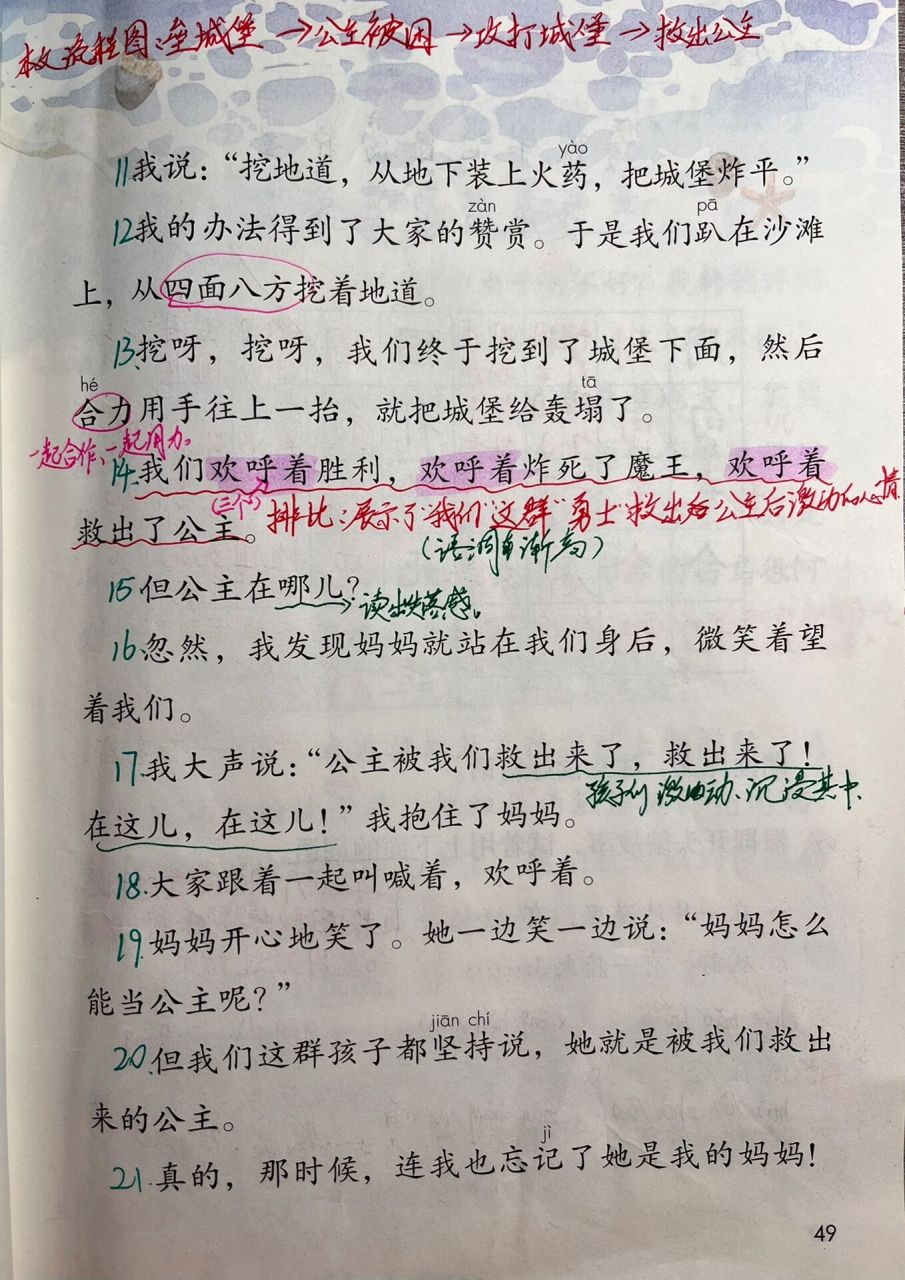 本文流程图:垒城堡→公主被困→攻打城堡→救出公主
yào
11我说:“挖地道,从地下装上火药,把城堡炸平。”
zàn pā
12我的办法得到了大家的赞赏。于是我们趴在沙滩
上,从四面八方挖着地道。
13.挖呀,挖呀,我们终于挖到了城堡下面,然后
hé tā
合力用手往上一抬,就把城堡给轰塌了。
一起合作、一起用力。
14.我们欢呼着胜利,欢呼着炸死了魔王,欢呼着
(三个)
救出了公主。排比:展示了“我们”这群“勇士”救出后公主后激动的心情
(语调渐高)
15但公主在哪儿?
读出失落感。
16.忽然,我发现妈妈就站在我们身后,微笑着望
着我们。
17.我大声说:“公主被我们救出来了,救出来了!
孩子们激动、沉浸其中.
在这儿,在这儿!”我抱住了妈妈。
18.大家跟着一起叫喊着,欢呼着。
19.妈妈开心地笑了。她一边笑一边说:“妈妈怎么
能当公主呢?”
jiān chí
20.但我们这群孩子都坚持说,她就是被我们救出
来的公主。
jì
21.真的,那时候,连我也忘记了她是我的妈妈!
49